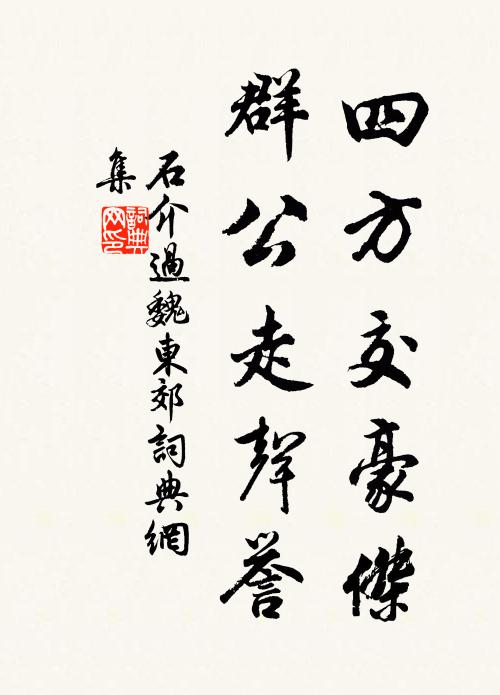 四方交豪傑
群公走聲譽
石介過魏東郊詞典網
集
詞典
网印